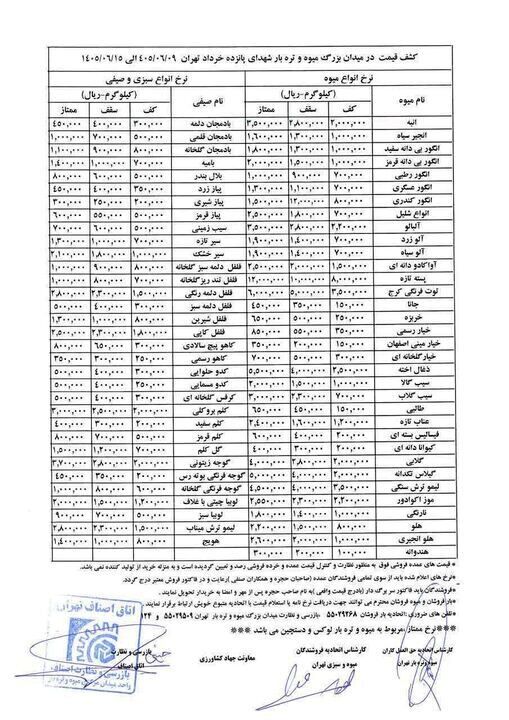 کشف قیمت در میدان بزرگ میوه و تره بار شهدای پانزده خرداد تهران ۴۰۵/۰۶/۰۹ الی ۱۴۰۵/۰۶/۱۵
نرخ انواع میوه نرخ انواع سبزی و صیفی
نام میوه (کیلوگرم-ریال) نام صیفی (کیلوگرم-ریال)
کف سقف ممتاز کف سقف ممتاز
انبه ۲,۰۰۰,۰۰۰ ۲,۸۰۰,۰۰۰ ۳,۵۰۰,۰۰۰ بادمجان دلمه ۳۰۰,۰۰۰ ۴۰۰,۰۰۰ ۴۵۰,۰۰۰
انجیر سیاه ۱,۰۰۰,۰۰۰ ۱,۳۰۰,۰۰۰ ۱,۶۰۰,۰۰۰ بادمجان قلمی ۵۰۰,۰۰۰ ۷۰۰,۰۰۰ ۱,۰۰۰,۰۰۰
انگور بی دانه سفید ۱,۰۰۰,۰۰۰ ۱,۳۰۰,۰۰۰ ۱,۸۰۰,۰۰۰ بادمجان گلخانه ۸۰۰,۰۰۰ ۹۰۰,۰۰۰ ۱,۱۰۰,۰۰۰
انگور بی دانه قرمز ۱,۰۰۰,۰۰۰ ۱,۵۰۰,۰۰۰ ۲,۰۰۰,۰۰۰ بامیه ۷۰۰,۰۰۰ ۱,۰۰۰,۰۰۰ ۱,۴۰۰,۰۰۰
انگور رطبی ۷۰۰,۰۰۰ ۹۰۰,۰۰۰ ۱,۰۰۰,۰۰۰ بلال بندر ۵۰۰,۰۰۰ ۶۰۰,۰۰۰ ۸۰۰,۰۰۰
انگور عسگری ۷۰۰,۰۰۰ ۱,۱۰۰,۰۰۰ ۱,۳۰۰,۰۰۰ پیاز زرد ۳۵۰,۰۰۰ ۴۰۰,۰۰۰ ۴۵۰,۰۰۰
انگور کندری ۸۰۰,۰۰۰ ۱۲,۰۰۰,۰۰۰ ۱,۵۰۰,۰۰۰ پیاز شیری ۲۰۰,۰۰۰ ۲۵۰,۰۰۰ ۳۰۰,۰۰۰
انواع شلیل ۷۰۰,۰۰۰ ۱,۸۰۰,۰۰۰ ۲,۵۰۰,۰۰۰ پیاز قرمز ۵۰۰,۰۰۰ ۵۵۰,۰۰۰ ۶۰۰,۰۰۰
آلبالو ۲,۲۰۰,۰۰۰ ۲,۸۰۰,۰۰۰ سیب زمینی
آلو زرد ۷۰۰,۰۰۰ ۱,۴۰۰,۰۰۰ ۱,۹۰۰,۰۰۰ سیر تازه ۷۰۰,۰۰۰ ۱,۰۰۰,۰۰۰ ۱,۳۰۰,۰۰۰
آلو سیاه ۷۰۰,۰۰۰ ۱,۴۰۰,۰۰۰ ۱,۹۰۰,۰۰۰ سیر خشک ۱,۰۰۰,۰۰۰ ۱,۸۰۰,۰۰۰ ۲,۱۰۰,۰۰۰
آواکادو دانه ای ۱,۵۰۰,۰۰۰ ۲,۰۰۰,۰۰۰ ۲,۵۰۰,۰۰۰ فلفل دلمه سبز گلخانه ۸۰۰,۰۰۰ ۹۰۰,۰۰۰ ۱,۰۰۰,۰۰۰
پسته تازه ۸,۰۰۰,۰۰۰ ۱۰,۰۰۰,۰۰۰ ۱۲,۰۰۰,۰۰۰ فلفل تند ریز گلخانه ۷۰۰,۰۰۰ ۸۰۰,۰۰۰ ۱,۰۰۰,۰۰۰
توت فرنگی کرج ۳,۵۰۰,۰۰۰ ۵,۰۰۰,۰۰۰ ۶,۰۰۰,۰۰۰ فلفل دلمه رنگی ۱,۵۰۰,۰۰۰ ۲,۳۰۰,۰۰۰ ۲,۸۰۰,۰۰۰
جانا ۱۵۰,۰۰۰ ۳۵۰,۰۰۰ ۴۵۰,۰۰۰ فلفل دلمه سبز ۳۰۰,۰۰۰ ۴۰۰,۰۰۰ ۵۰۰,۰۰۰
خربزه ۲۵۰,۰۰۰ ۵۰۰,۰۰۰ ۶۵۰,۰۰۰ فلفل شیرین ۸۰۰,۰۰۰ ۱,۰۰۰,۰۰۰ ۱,۳۰۰,۰۰۰
خیار رسمی ۳۵۰,۰۰۰ ۵۵۰,۰۰۰ ۸۵۰,۰۰۰ فلفل کاپی ۱,۸۰۰,۰۰۰ ۲,۳۰۰,۰۰۰ ۲,۵۰۰,۰۰۰
خیار مینی اصفهان ۱۵۰,۰۰۰ ۲۰۰,۰۰۰ ۳۵۰,۰۰۰ کاهو پیچ سالادی ۳۰۰,۰۰۰ ۶۵۰,۰۰۰ ۸۰۰,۰۰۰
خیار گلخانه ای ۳۰۰,۰۰۰ ۵۰۰,۰۰۰ ۷۰۰,۰۰۰ کاهو رسمی ۲۵۰,۰۰۰ ۳۰۰,۰۰۰ ۳۵۰,۰۰۰
ذغال اخته ۲,۵۰۰,۰۰۰ ۴,۰۰۰,۰۰۰ ۵,۵۰۰,۰۰۰ کدو حلوایی ۲۵۰,۰۰۰ ۴۰۰,۰۰۰ ۵۰۰,۰۰۰
سیب گالا ۱,۰۰۰,۰۰۰ ۱,۵۰۰,۰۰۰ ۲,۰۰۰,۰۰۰ کدو مسمایی ۲۵۰,۰۰۰ ۴۰۰,۰۰۰ ۵۰۰,۰۰۰
سیب گلاب ۷۰۰,۰۰۰ ۲,۳۰۰,۰۰۰ ۳,۰۰۰,۰۰۰ کرفس گلخانه ای ۳۰۰,۰۰۰ ۴۰۰,۰۰۰ ۵۰۰,۰۰۰
طالبی ۱۵۰,۰۰۰ ۴۵۰,۰۰۰ ۶۵۰,۰۰۰ کلم بروکلی ۲,۰۰۰,۰۰۰ ۲,۵۰۰,۰۰۰ ۳,۰۰۰,۰۰۰
عناب تازه ۱,۲۰۰,۰۰۰ ۱,۶۰۰,۰۰۰ ۲,۴۰۰,۰۰۰ کلم سفید ۲۰۰,۰۰۰ ۳۰۰,۰۰۰ ۴۰۰,۰۰۰
فیسالیس بسته ای ۲۰۰,۰۰۰ ۴۰۰,۰۰۰ ۶۰۰,۰۰۰ کلم قرمز ۵۰۰,۰۰۰ ۷۰۰,۰۰۰ ۸۰۰,۰۰۰
کیوانا دانه ای گل کلم ۷۰۰,۰۰۰ ۱,۲۰۰,۰۰۰ ۱,۵۰۰,۰۰۰
گلابی ۲,۰۰۰,۰۰۰ ۴,۰۰۰,۰۰۰ گوجه زیتونی ۲,۰۰۰,۰۰۰ ۲,۸۰۰,۰۰۰ ۳,۷۰۰,۰۰۰
گیلاس تکدانه ۴,۰۰۰,۰۰۰ ۵,۰۰۰,۰۰۰ گوجه فرنگی بوته رس ۲۰۰,۰۰۰ ۳۵۰,۰۰۰ ۴۵۰,۰۰۰
لیمو ترش سنگی ۱,۵۰۰,۰۰۰ ۳,۵۰۰,۰۰۰ ۴,۰۰۰,۰۰۰ گوجه فرنگی گلخانه ۶۰۰,۰۰۰ ۸۰۰,۰۰۰ ۱,۰۰۰,۰۰۰
موز اکوادور ۲,۲۰۰,۰۰۰ ۲,۳۰۰,۰۰۰ ۲,۵۵۰,۰۰۰ لوبیا چیتی با غلاف ۱,۲۰۰,۰۰۰ ۱,۵۰۰,۰۰۰ ۲,۰۰۰,۰۰۰
نارنگی ۱,۰۰۰,۰۰۰ ۱,۴۰۰,۰۰۰ ۱,۸۰۰,۰۰۰ لوبیا سبز ۵۰۰,۰۰۰ ۷۰۰,۰۰۰ ۹۰۰,۰۰۰
هلو ۸۰۰,۰۰۰ ۱,۵۰۰,۰۰۰ ۲,۲۰۰,۰۰۰ لیمو ترش میناب ۱,۵۰۰,۰۰۰ ۲,۳۰۰,۰۰۰ ۲,۸۰۰,۰۰۰
هلو انجیری ۱,۰۰۰,۰۰۰ ۱,۶۰۰,۰۰۰ ۲,۲۰۰,۰۰۰ هویج ۸۰۰,۰۰۰ ۱,۰۰۰,۰۰۰ ۱,۴۰۰,۰۰۰
هندوانه ۱۰۰,۰۰۰ ۲۰۰,۰۰۰ ۳۰۰,۰۰۰
* قیمت های عمده فروشی فوق به منظور نظارت و کنترل قیمت عمده و خرده فروشی رصد و تعیین گردیده است و به منزله خرید از تولید کننده نمی باشد.
*نرخ های اعلام شده باید از سوی تمامی فروشندگان عمده (صاحبان حجره و همکاران صنفی) رعایت و در فاکتور فروش معتبر درج گردد.
فروشندگان باید فاکتور سر برگ دار (بادرج قیمت واقعی) به نام صاحب حجره پس از مهر و امضا به خریدار تحویل نمایند.
بار فروشان و میوه فروشان محترم می توانند جهت دریافت نرخ نامه یا استعلام قیمت با اتحادیه متبوع خویش ارتباط برقرار نمایند.
*تلفن های ضروری: اتحادیه بار فروشان ۵۵۰۲۹۲۶۸ -بازرسی و نظارت میدان بزرگ میوه و تره بار تهران ۵۵۰۲۹۵۰۹ و ۱۲۴
*نرخ ممتاز ،مربوط به میوه و تره بار لوکس و دستچین می باشد ***
کارشناس اتحادیه حق العمل کاران میوه وتره بار تهران
کارشناس اتحادیه فروشندگان میوه و سبزی تهران
معاونت جهاد کشاورزی
بازرسی و نظارت اتاق اصناف
اتاق اصناف تهران
بازرسی و نظارت اصناف